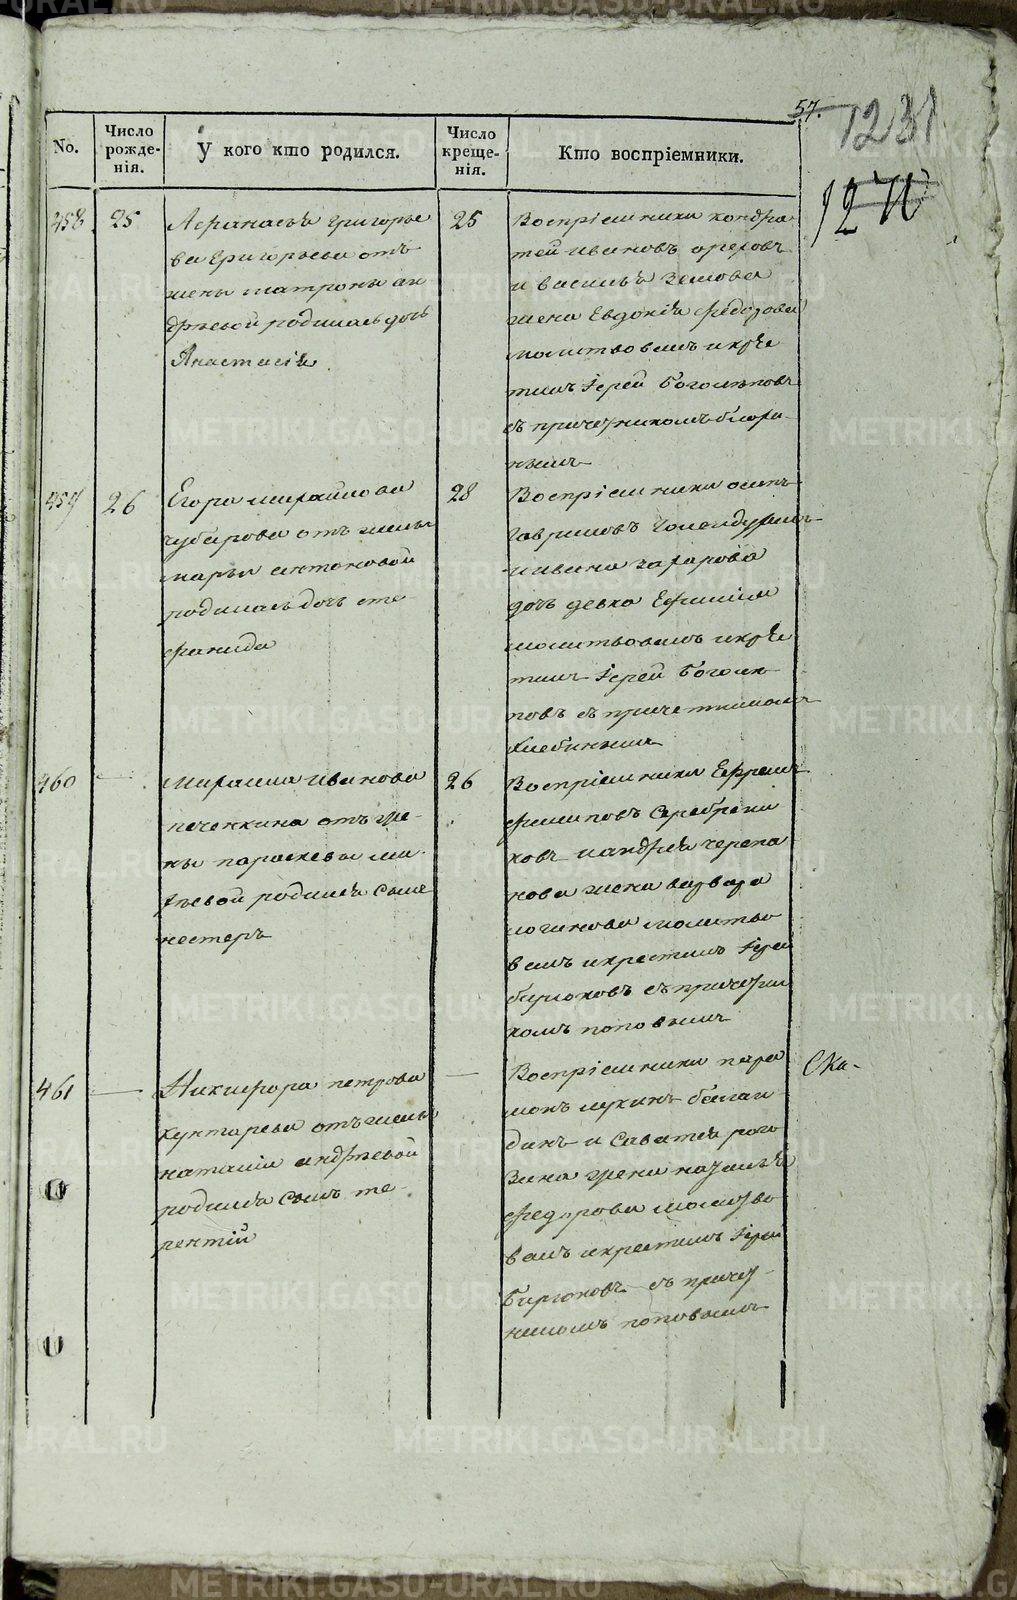 57.
1231
1270
No.
Число рожде-нія.
У кого кто родился.
Число креще-нія.
Кто воспріемники.
458
25
Афанасья григорье
ва григорьева отъ
жены матроны ан
дрѣевой родилась дочь
Анастасія
25
Воспріемники кондра
тей ивановъ ореховъ
и василья земова
жена Евдокія федорова
молитвовалъ и кре
тилъ Іерей Боголѣповъ
съ причетникомъ
459
26
Егора михайлова
чубарова отъ жены
марьи антоновой
родилась дочь сте
фанида
28
Воспріемники осипъ
гавриловъ
и ивана захарова
дочь девка Ефимія
молитвовалъ и кре
тилъ Іерей Боголе
повъ съ причетникомъ
хлебинымъ
460
—
михаила иванова
печенкина отъ же-
ны параскевы ма
твѣевой родился сынъ
нестеръ
26
Воспріемники Ефремъ
филиповъ Серебрени
ковъ и андрея черепа
нова жена варвара
логинова молитво
валъ и крестилъ Іерей
бирюковъ съ причетни
комъ поповымъ
461
—
Никифора петрова
кунгарева отъ жены
наталіи андрѣевой
родился сынъ те-
рентій
—
Воспріемники пара
монъ лукинъ балан
динъ и Саватея рого
зина жена наталья
федорова молитво
валъ и крестилъ Іерей
Бирюковъ съ причет-
никомъ поповымъ
Ска-
METRIKI.GASO-URAL.RU